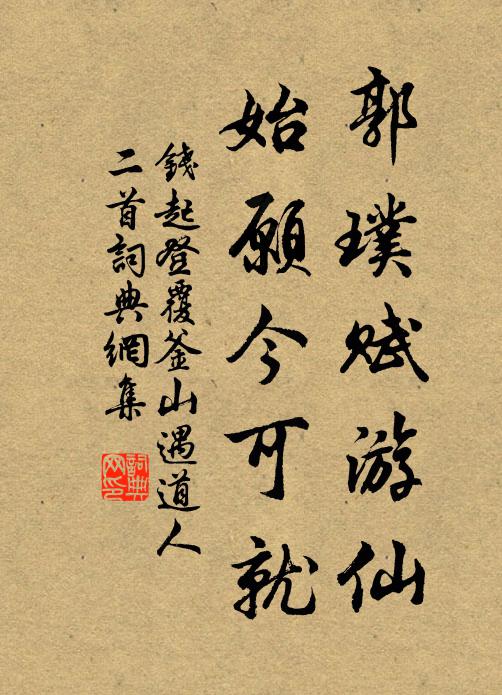 郭璞赋游仙
始願今可就
錢起登覆釜山遇道人
二首詞典網集
詞典網印